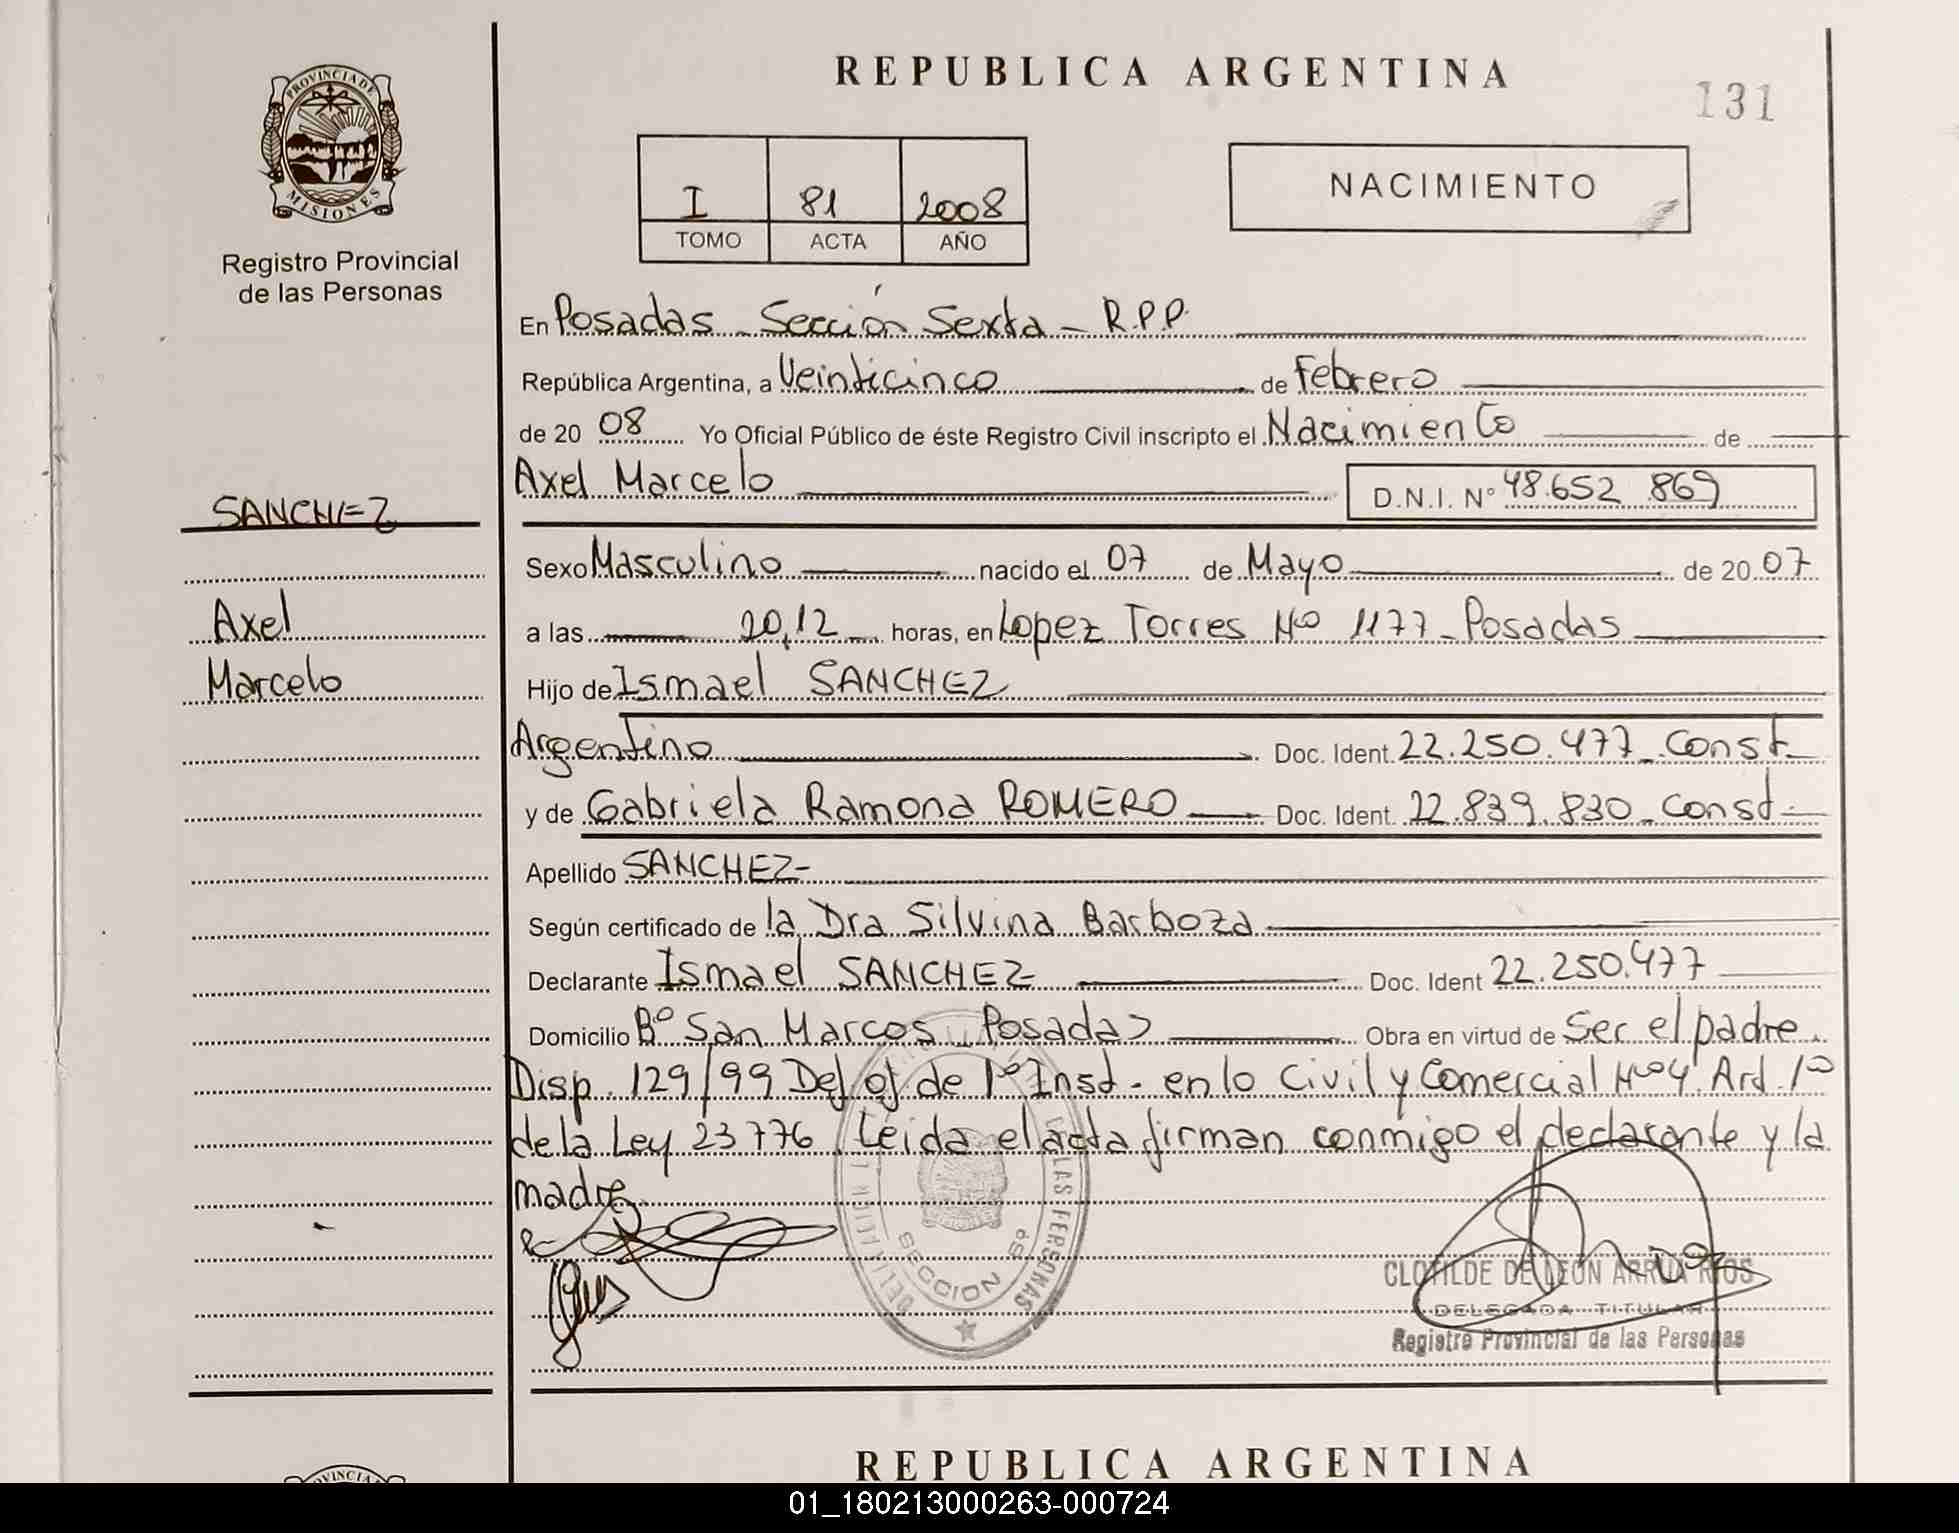 REPUBLICA ARGENTINA
131
PROVINCIA DE
MISIONES
Registro Provincial
de las Personas
I 81 2008
TOMO ACTA AÑO
NACIMIENTO
En Posadas - Sección Sexta - R.P.P.
República Argentina, a Veinticinco de Febrero
de 20 08 Yo Oficial Público de éste Registro Civil inscripto el Nacimiento de
Axel Marcelo D.N.I. Nº 48.652 869
SANCHEZ
Sexo Masculino nacido el 07 de Mayo de 20 07
Axel
a las 20,12 horas, en Lopez Torres Nº 1177 - Posadas
Marcelo
Hijo de Ismael SANCHEZ
Argentino Doc. Ident. 22.250.477 - Const -
y de Gabriela Ramona ROMERO Doc. Ident. 22.839.830 - Const -
Apellido SANCHEZ -
Según certificado de la Dra Silvina Barboza
Declarante Ismael SANCHEZ Doc. Ident 22.250.477
Domicilio Bº San Marcos - Posadas Obra en virtud de Ser el padre.
Disp. 129/99 Def of de 1º Inst - en lo Civil y Comercial Nº 4. Art. 1º
de la Ley 23776. Leida el acta firman conmigo el declarante y la
madre.
LAS PERSONAS
SECCION 6º
CLOTILDE DE LEON ARRUA RIOS
DELEGADA TITULAR
Registro Provincial de las Personas
REPUBLICA ARGENTINA
01_180213000263-000724